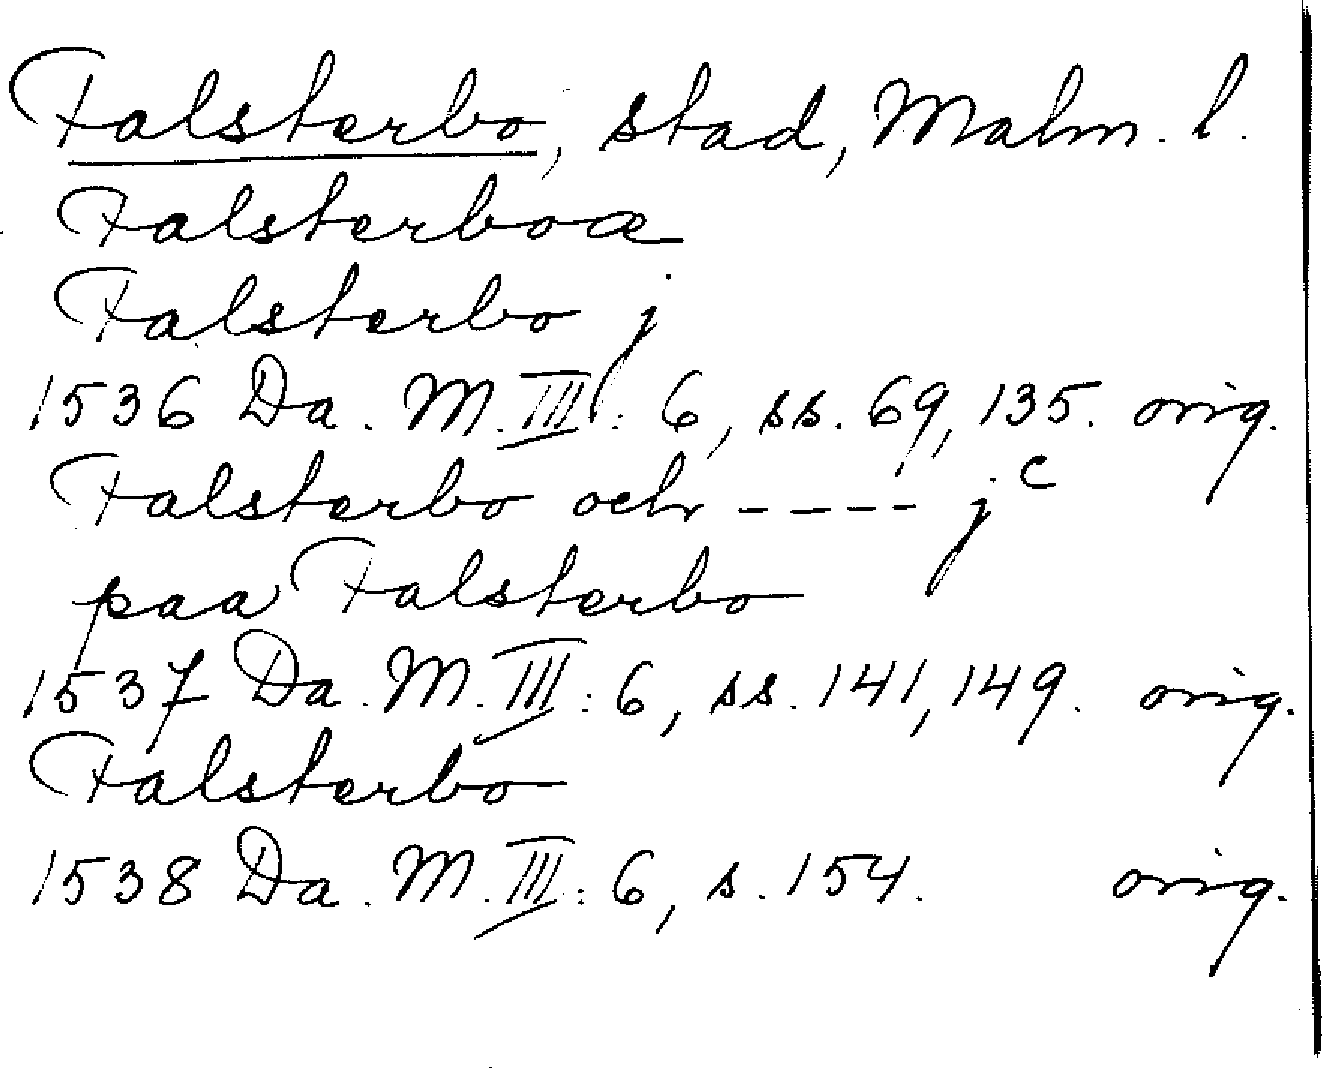 Falsterbo, stad, Malm. l.
Falsterboæ
Falsterbo j
1536 Da. M. III: 6, ss. 69, 135. orig.
Falsterbo och ---- jc
paa Falsterbo
1537 Da. M. III: 6, ss. 141, 149. orig.
Falsterbo
1538 Da. M. III: 6, s. 154. orig.